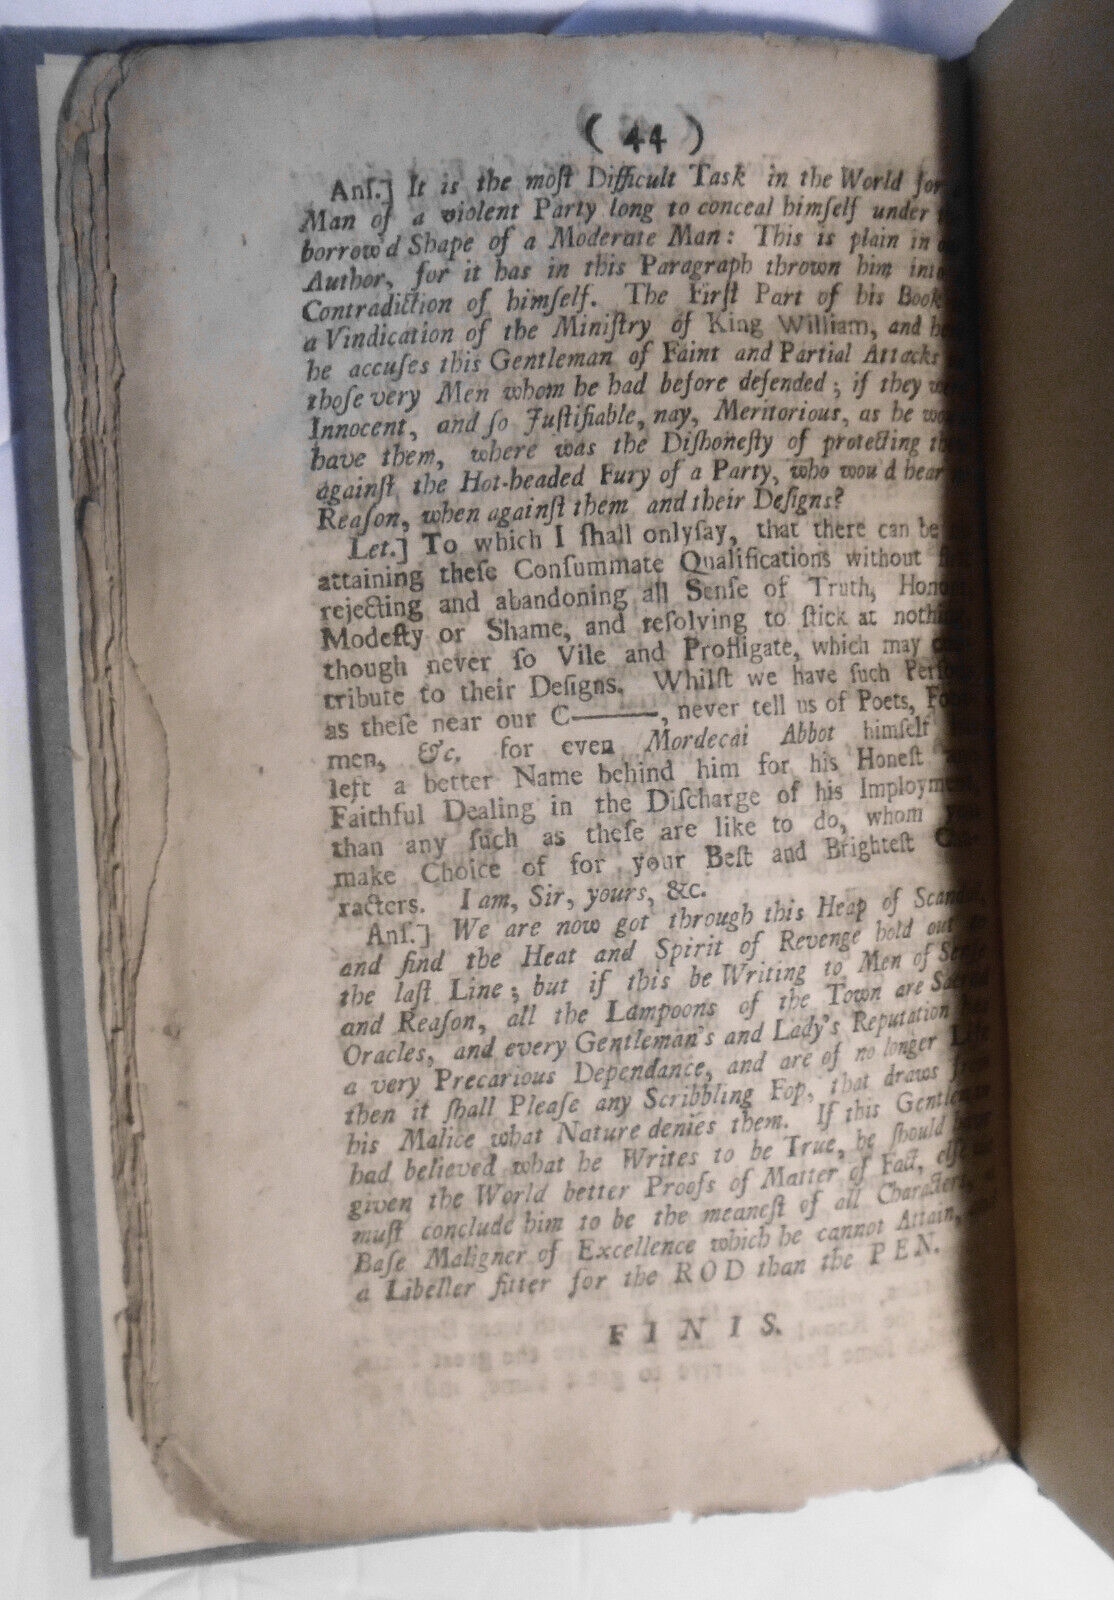 ( 44 )
Anſ.] It is the moſt Difficult Task in the World for
Man of a violent Party long to conceal himſelf under
borrow'd Shape of a Moderate Man: This is plain in
Author, for it has in this Paragraph thrown him into
Contradiction of himſelf. The Firſt Part of his Book
a Vindication of the Miniſtry of King William, and
he accuſes this Gentleman of Faint and Partial Attacks
thoſe very Men whom he had before defended; if they
Innocent, and ſo Juſtifiable, nay, Meritorious, as he
have them, where was the Diſhoneſty of protecting
againſt the Hot-headed Fury of a Party, who wou'd hear
Reaſon, when againſt them and their Deſigns?
Let.] To which I ſhall onlyſay, that there can be
attaining theſe Conſummate Qualifications without
rejecting and abandoning all Senſe of Truth, Honour,
Modeſty or Shame, and reſolving to ſtick at nothing
though never ſo Vile and Profligate, which may
tribute to their Deſigns. Whilſt we have ſuch Perſons
as theſe near our C———, never tell us of Poets,
men, &c. for even Mordecai Abbot himſelf
left a better Name behind him for his Honeſt
Faithful Dealing in the Diſcharge of his Imployment,
than any ſuch as theſe are like to do, whom you
make Choice of for your Beſt and Brighteſt Cha-
racters. I am, Sir, yours, &c.
Anſ.] We are now got through this Heap of Scandal,
and find the Heat and Spirit of Revenge hold out to
the laſt Line; but if this be Writing to Men of Senſe
and Reaſon, all the Lampoons of the Town are Sacred
Oracles, and every Gentleman's and Lady's Reputation has
a very Precarious Dependance, and are of no longer Life
then it ſhall Pleaſe any Scribbling Fop, that draws from
his Malice what Nature denies them. If this Gentleman
had believed what he Writes to be True, he ſhould have
given the World better Proofs of Matter of Fact, elſe
muſt conclude him to be the meaneſt of all Characters,
Baſe Maligner of Excellence which he cannot Attain,
a Libeller fitter for the ROD than the PEN.
FINIS.